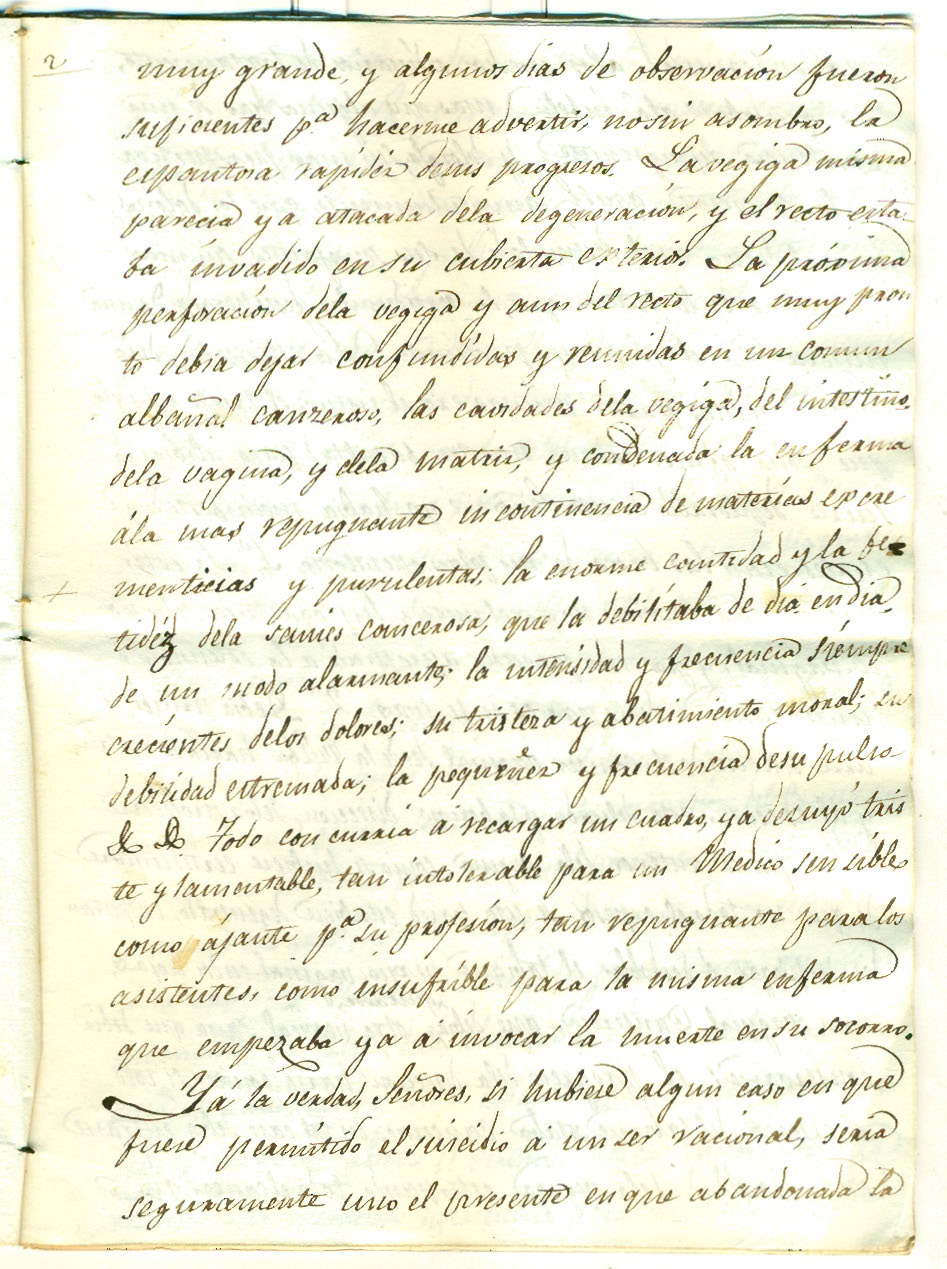 2
muy grande, y algunos dias de observación fueron
suficientes p.a hacerme advertir, no sin asombro, la
espantosa rapidéz desus progresos. La vegiga misma
parecia ya atacada dela degeneración, y el recto esta
ba invadido en su cubierta exterior. La próxima
perforación dela vegiga y aun del recto que muy pron
to debia dejar confundidas y reunidas en un comun
albañal canzeroso, las cavidades dela vegiga, del intestino,
dela vagina, y dela matriz, y condenada la enferma
ála mas repugnante incontinencia de materias excre
menticias y purulentas; la enorme cantidad y la fe
tidéz dela sanies cancerosa, que la debilitaba de dia en dia
de un modo alarmante; la intensidad y frecuencia siempre
crécientes delos dolores; su tristeza y abatimiento moral; su
debilidad estremada; la pequeñez y frecuencia desu pulso
&. &. Todo concurria á recargar un cuadro, ya desuyo tris
te y lamentable, tan intolerable para un Medico sensible
como ájante p.a su profesión, tan repugnante para los
asistentes, como insufrible para la misma enferma
que empezaba ya á invocar la muerte en su socorro.
Yá la verdad, Señores, si hubiese algun caso en que
fuese permitido el suicidio á un ser racional, seria
seguramente uno el presente en que abandonada la